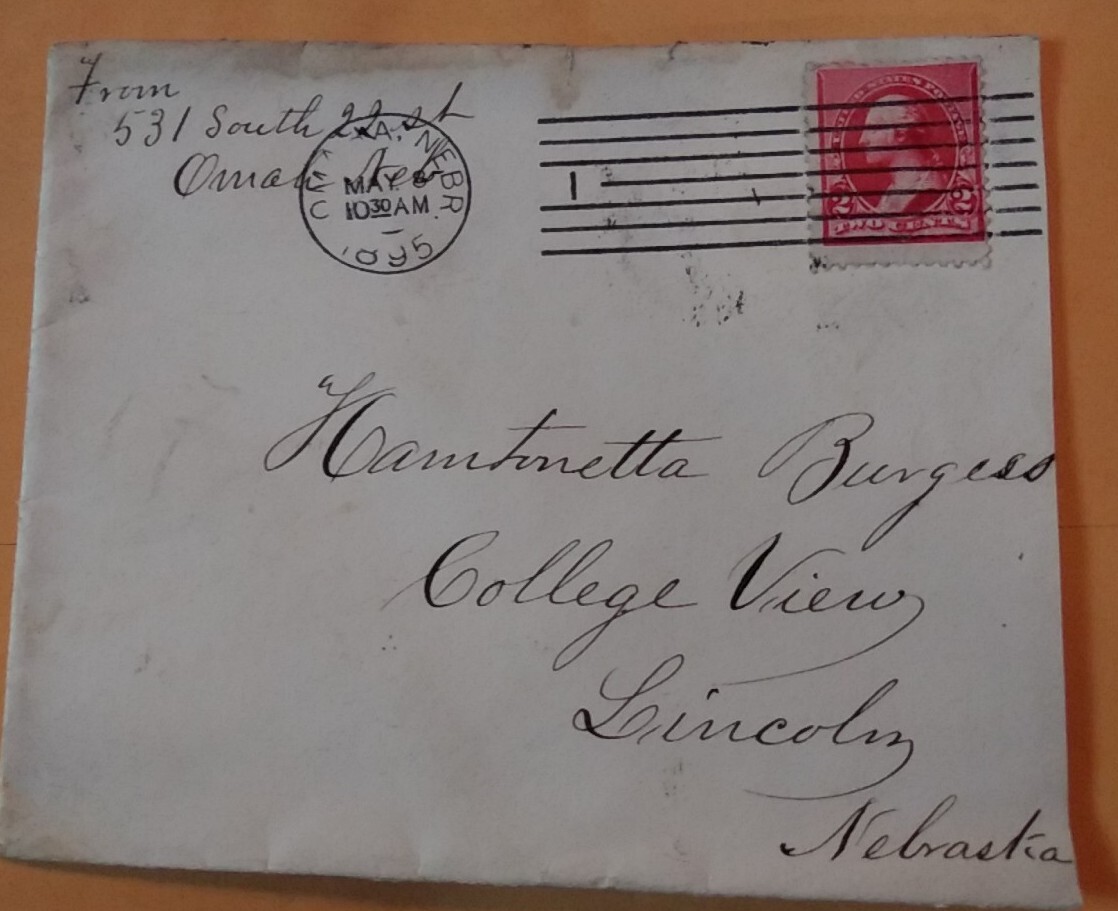 From
531 South 22 st
Omah Neb
OMAHA, NEBR.
MAY 8
10 30 AM
1895
1
UNITED STATES POSTAGE
2 2
TWO CENTS
Hamtonetta Burgess
College View
Lincoln
Nebraska